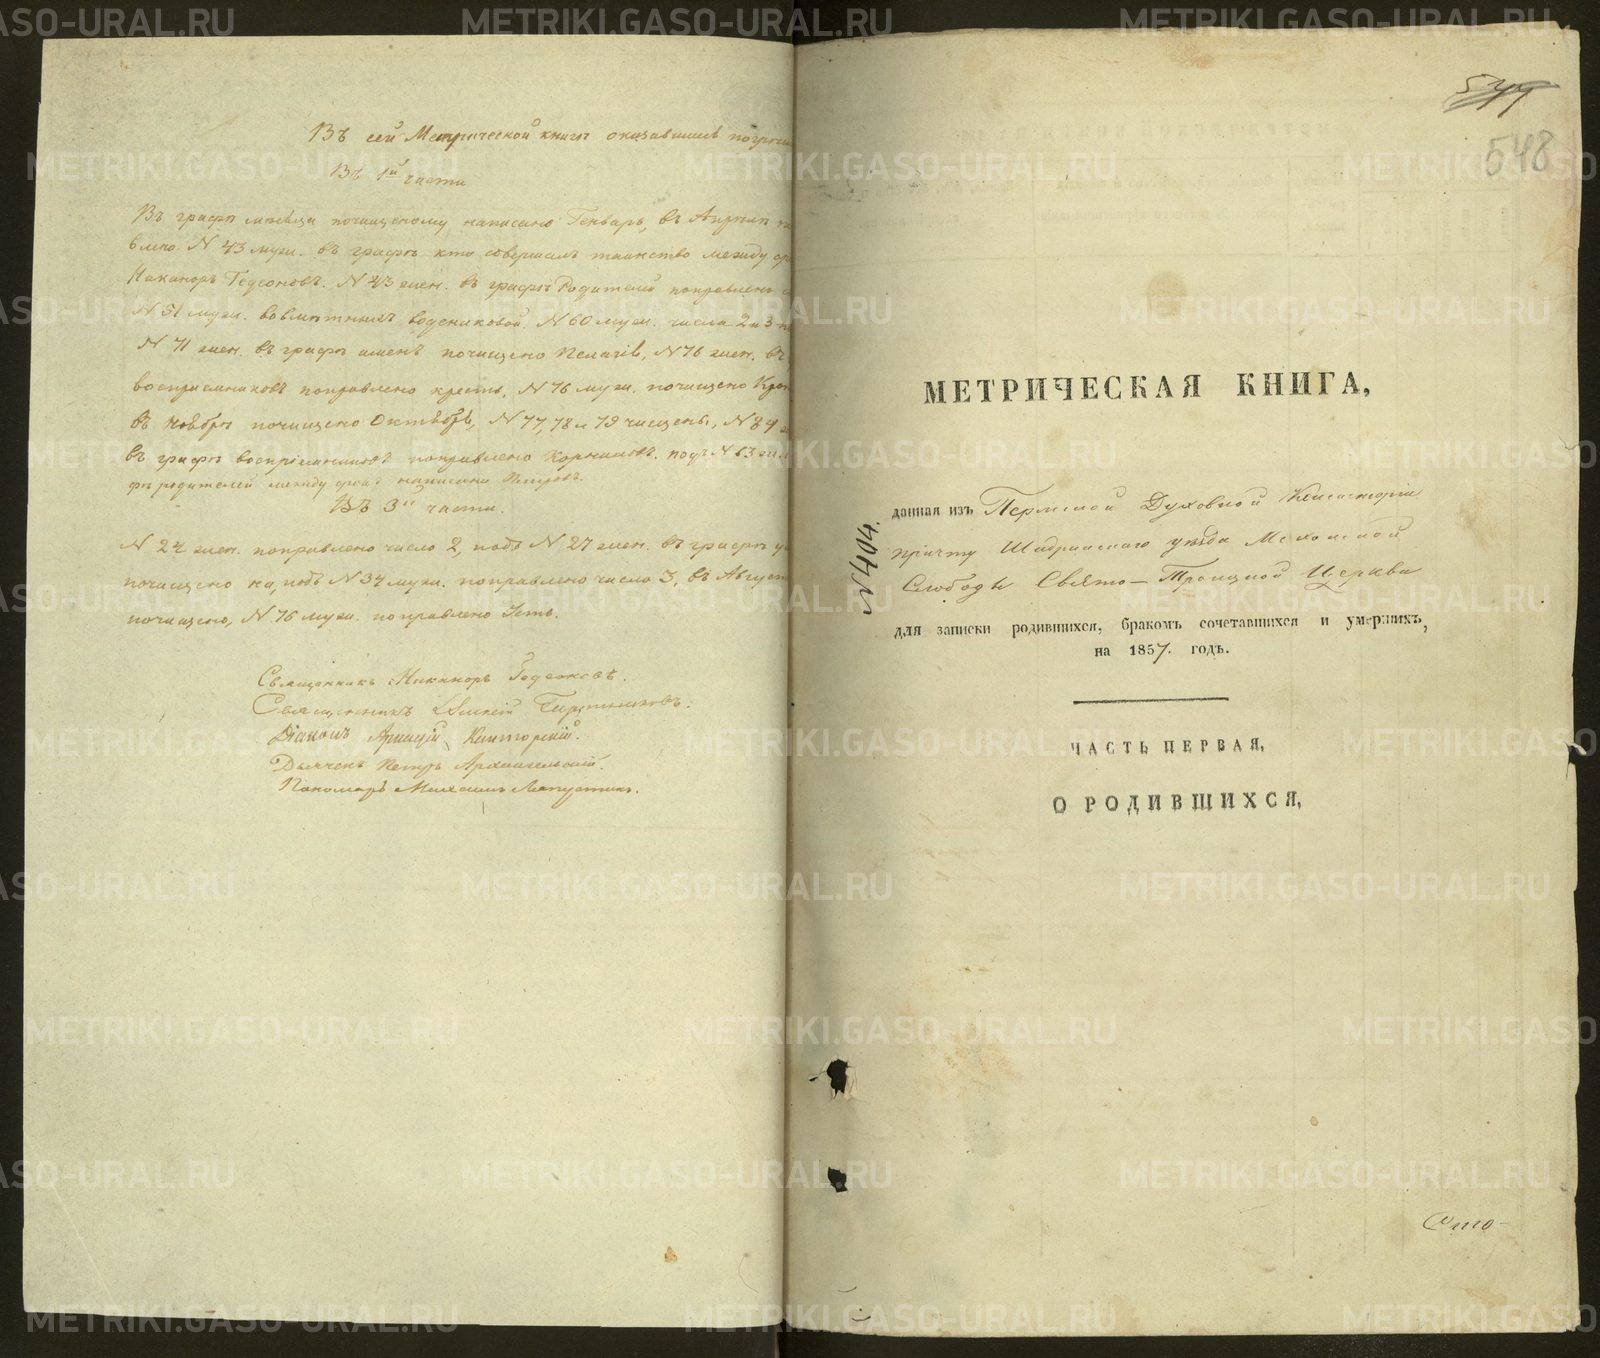 Въ сей Метрической книгѣ оказавшiясѣ погрѣш
Въ 1й части
Въ графѣ мѣсяца почищеному написано Генварь, въ Апрѣлѣ
влено N 43 муж. въ графѣ кто совершалъ таинство между
Никаноръ Гедеоновъ. N 43 жен. въ графѣ Родителей поправлено
N 51 муж. N 60 муж. числа 2 и 3
N 71 жен. въ графѣ именъ почищено Пелагiя, N 76 жен. въ
воспрiемниковъ поправлено кресть. N 76 муж. почищено
въ Ноябрѣ почищено Октябрь, N 77, 78 и 79 чищены, N 84
въ графѣ воспрiемниковъ поправлено Корниловъ. подъ N 63
фѣ родителей между написано Петровъ.
Въ 3й части.
N 24 жен. поправлено число 2, подъ N 27 жен. въ графѣ
почищено на, подъ N 34 муж. поправлено число 3, въ Августѣ
почищено, N 76 муж. поправлено Усть.
Священникъ Никаноръ Гедеоновъ.
Священникъ Алексiй
Дiаконъ Аркадiй Канторскiй.
Дьячекъ Петръ Архангельскiй.
Пономарь Михаилъ Лапустинъ.
548
МЕТРИЧЕСКАЯ КНИГА,
данная изъ Пермской Духовной Консисторiи
N 404.
причту Шадринскаго уѣзда Мехонской
Слободы Свято-Троицкой Церкви
для записки родившихся, бракомъ сочетавшихся и умершихъ,
на 1857. годъ.
ЧАСТЬ ПЕРВАЯ,
О РОДИВШИХСЯ,
METRIKI.GASO-URAL.RU